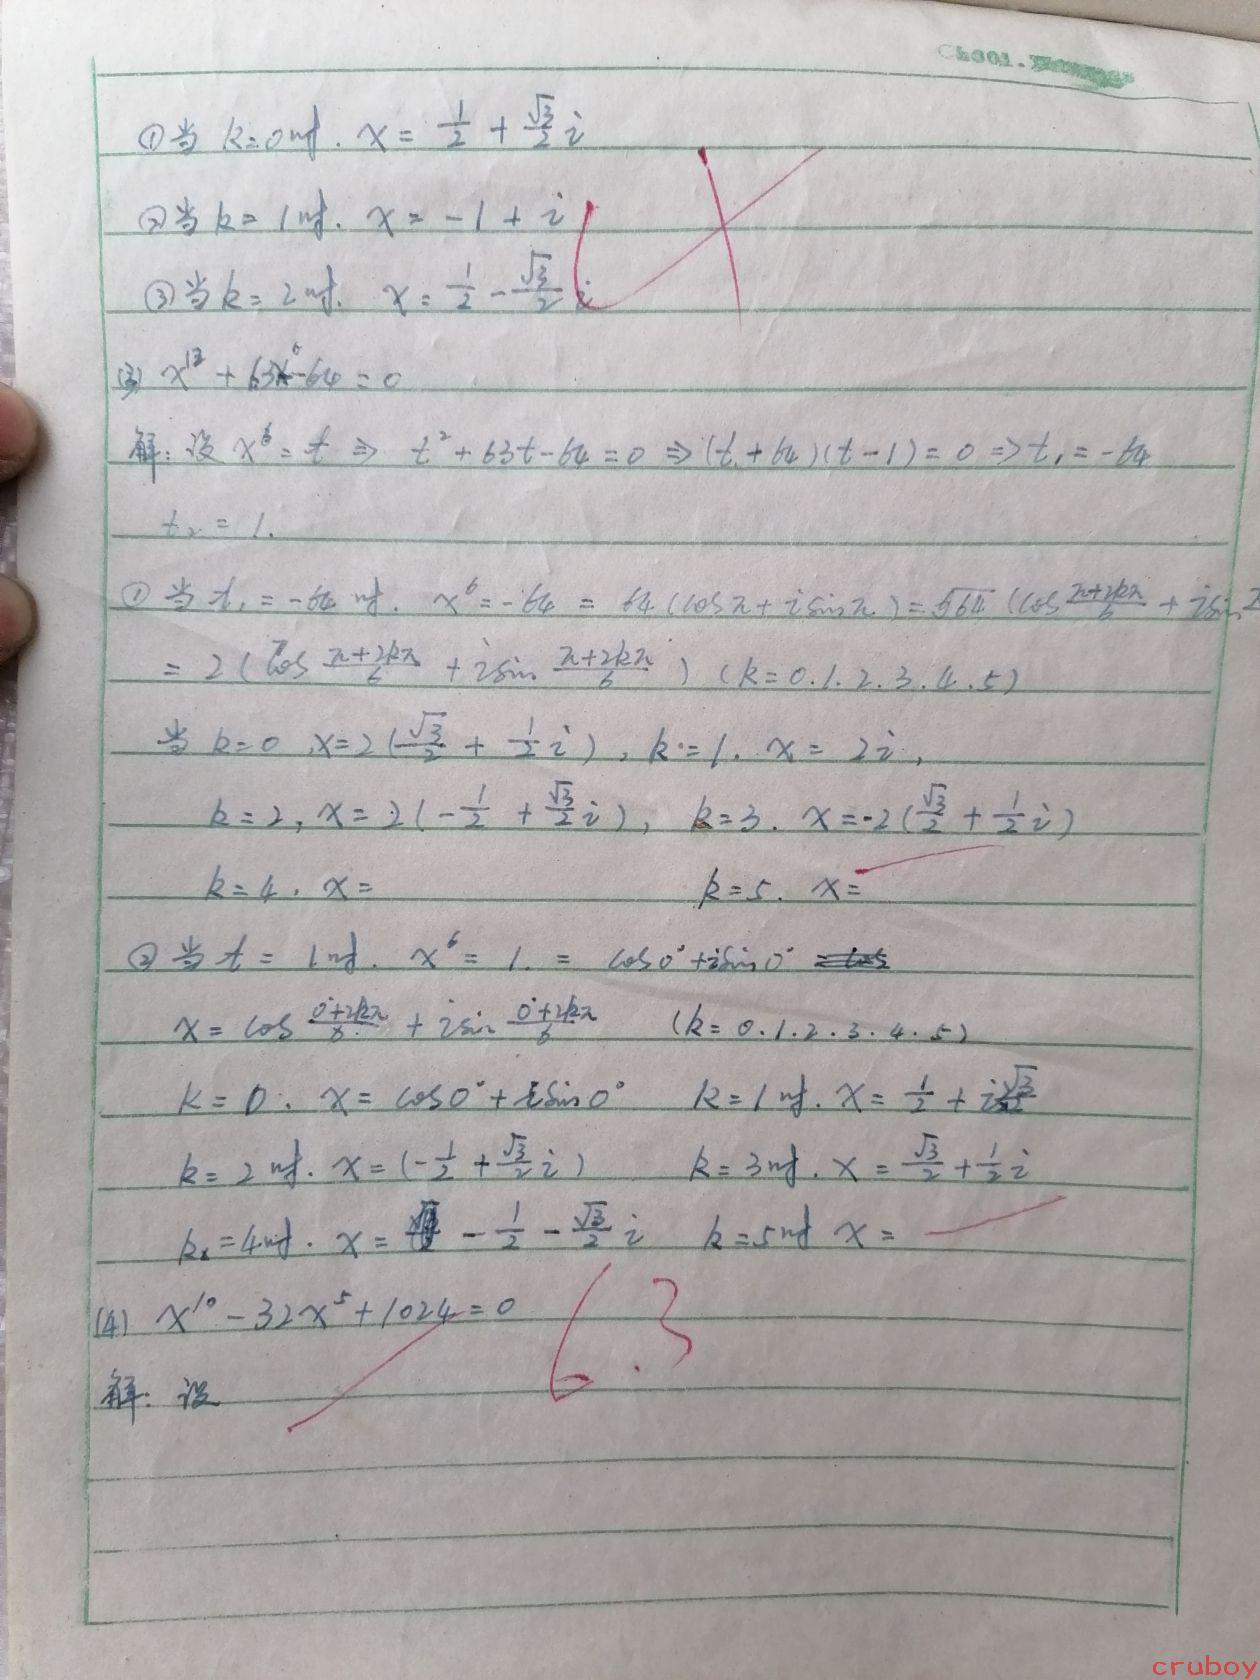 Ch001.
①当 k=0时. x = 1/2 + √3/2 i
②当 k=1时. x = -1 + i
③当 k=2时. x = 1/2 - √3/2 i
(3) x¹² + 63x⁶ - 64 = 0
解: 设 x⁶ = t ⇒ t² + 63t - 64 = 0 ⇒ (t + 64)(t - 1) = 0 ⇒ t₁ = -64
t₂ = 1.
① 当 t₁ = -64 时. x⁶ = -64 = 64 (cosπ + i sinπ) = ⁶√64 (cos (π+2kπ)/6 + i sin
= 2 (cos (π+2kπ)/6 + i sin (π+2kπ)/6) (k = 0.1.2.3.4.5)
当 k=0, x = 2 (√3/2 + 1/2 i), k = 1. x = 2i,
k = 2, x = 2 (-1/2 + √3/2 i), k = 3. x = -2 (√3/2 + 1/2 i)
k = 4. x = k = 5. x =
② 当 t = 1时. x⁶ = 1. = cos0° + i sin0°
x = cos (0°+2kπ)/6 + i sin (0°+2kπ)/6 (k = 0.1.2.3.4.5)
k = 0. x = cos0° + i sin0° k = 1时. x = 1/2 + i √3/2
k = 2时. x = (-1/2 + √3/2 i) k = 3时. x = √3/2 + 1/2 i
k = 4时. x = - 1/2 - √3/2 i k = 5时 x =
(4) x¹⁰ - 32x⁵ + 1024 = 0
6.3
解: 设
cruboy